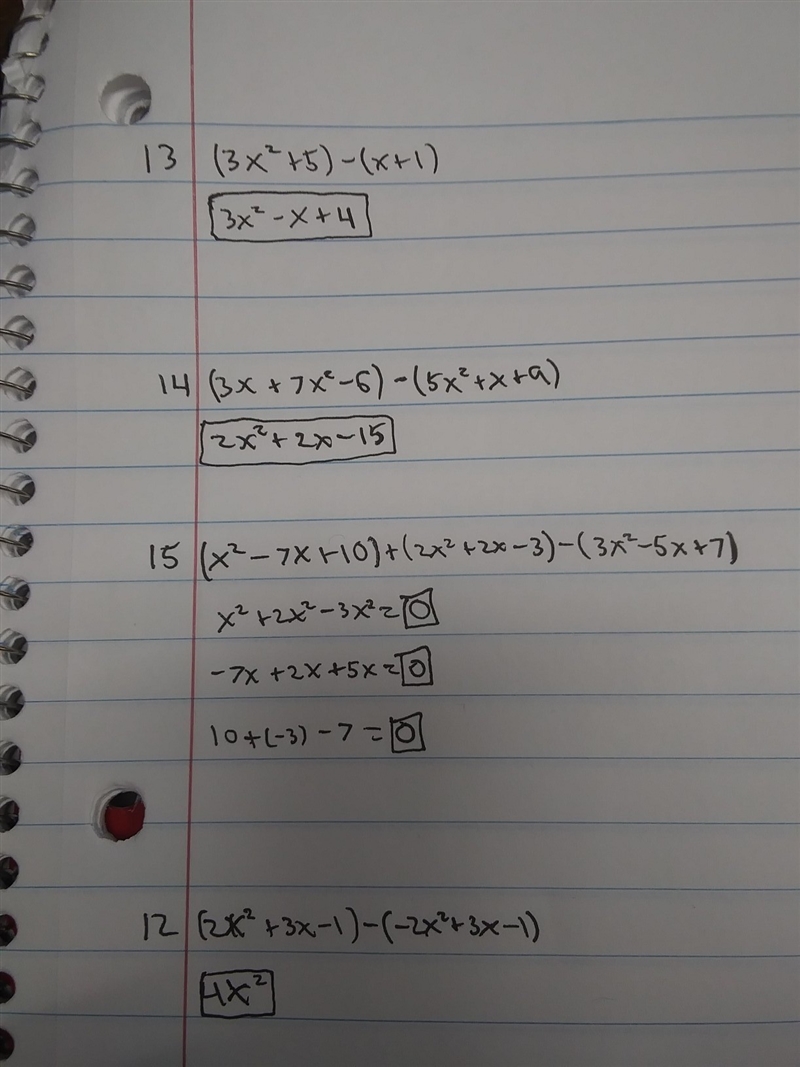 13 (3x²+5)-(x+1)
3x²-x+4
14 (3x+7x²-6)-(5x²+x+9)
2x²+2x-15
15 (x²-7x+10)+(2x²+2x-3)-(3x²-5x+7)
x²+2x²-3x²=0
-7x+2x+5x=0
10+(-3)-7=0
12 (2x²+3x-1)-(-2x²+3x-1)
4x²